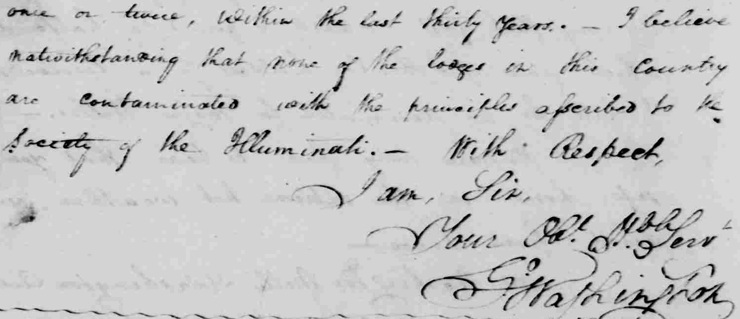 once or twice, within the last thirty years. — I believe
notwithstanding that none of the lodges in this Country
are contaminated with the principles ascribed to the
Society of the Illuminati. — With Respect,
I am, Sir,
Your Obt. Hble Servt
Go Washington